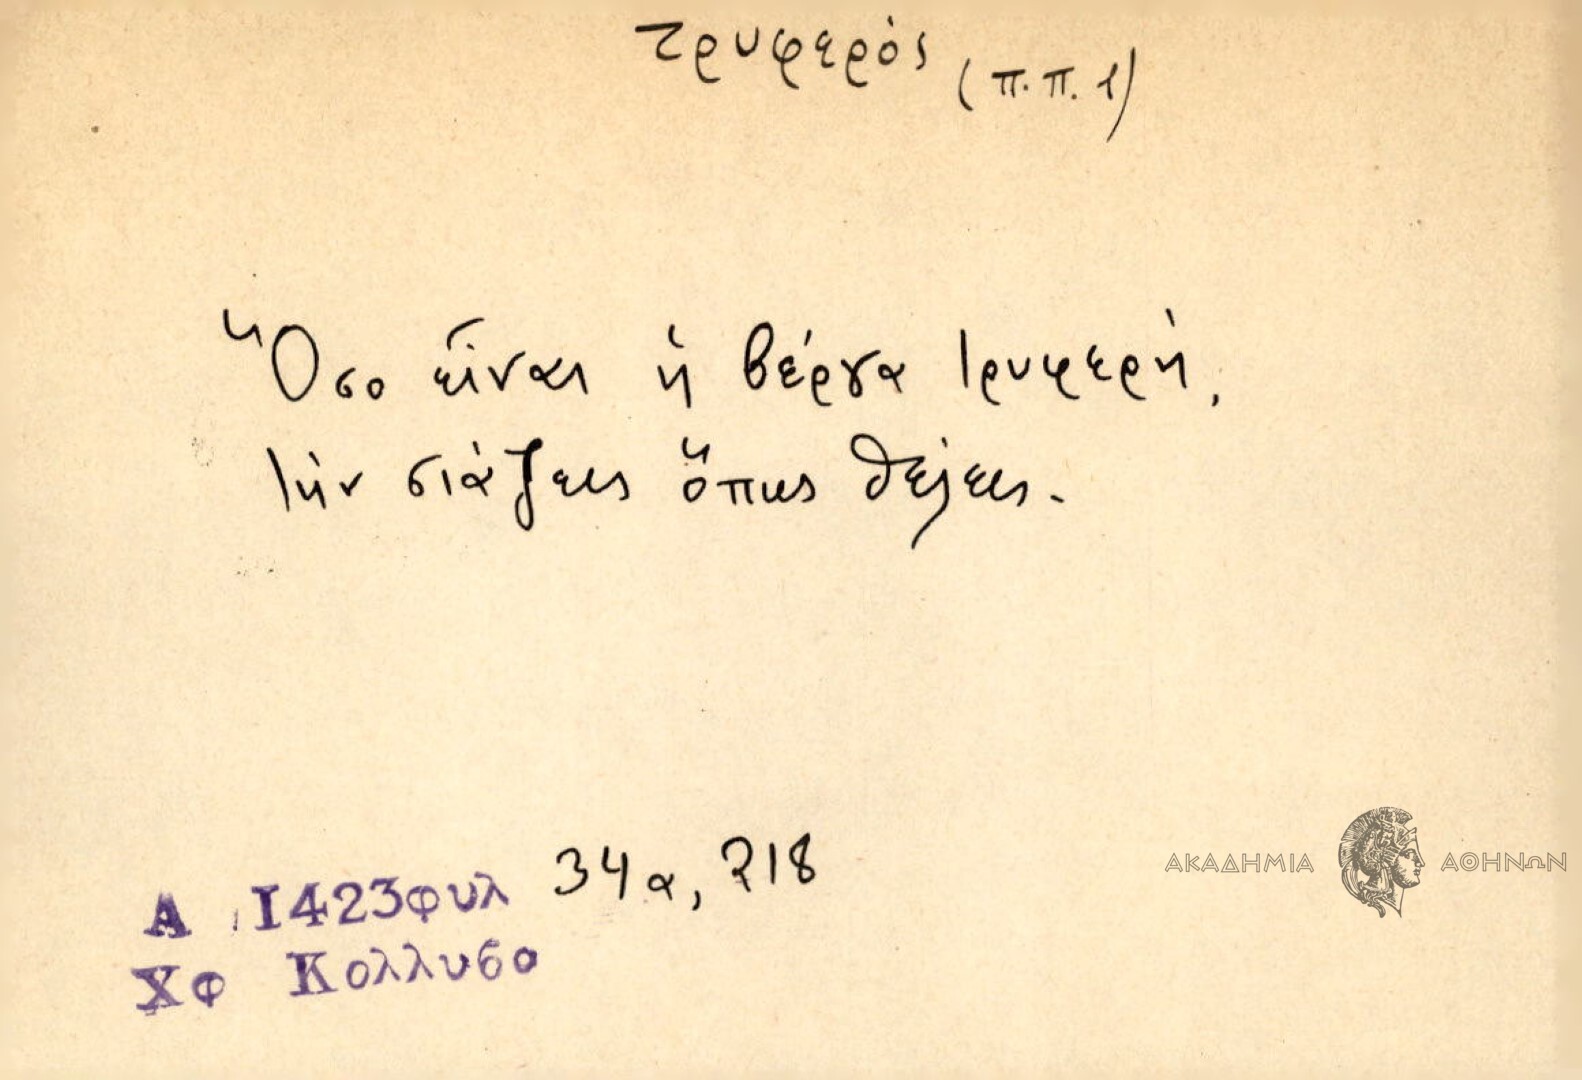 τρυφερός (π.π. 1)
Ὅσο εἶναι ἡ βέργα τρυφερή,
τὴν σιάζεις ὅπως θέλεις.
Α 1423φυλ 34α, 218
Χφ Κολλυσο
ΑΚΑΔΗΜΙΑ ΑΘΗΝΩΝ